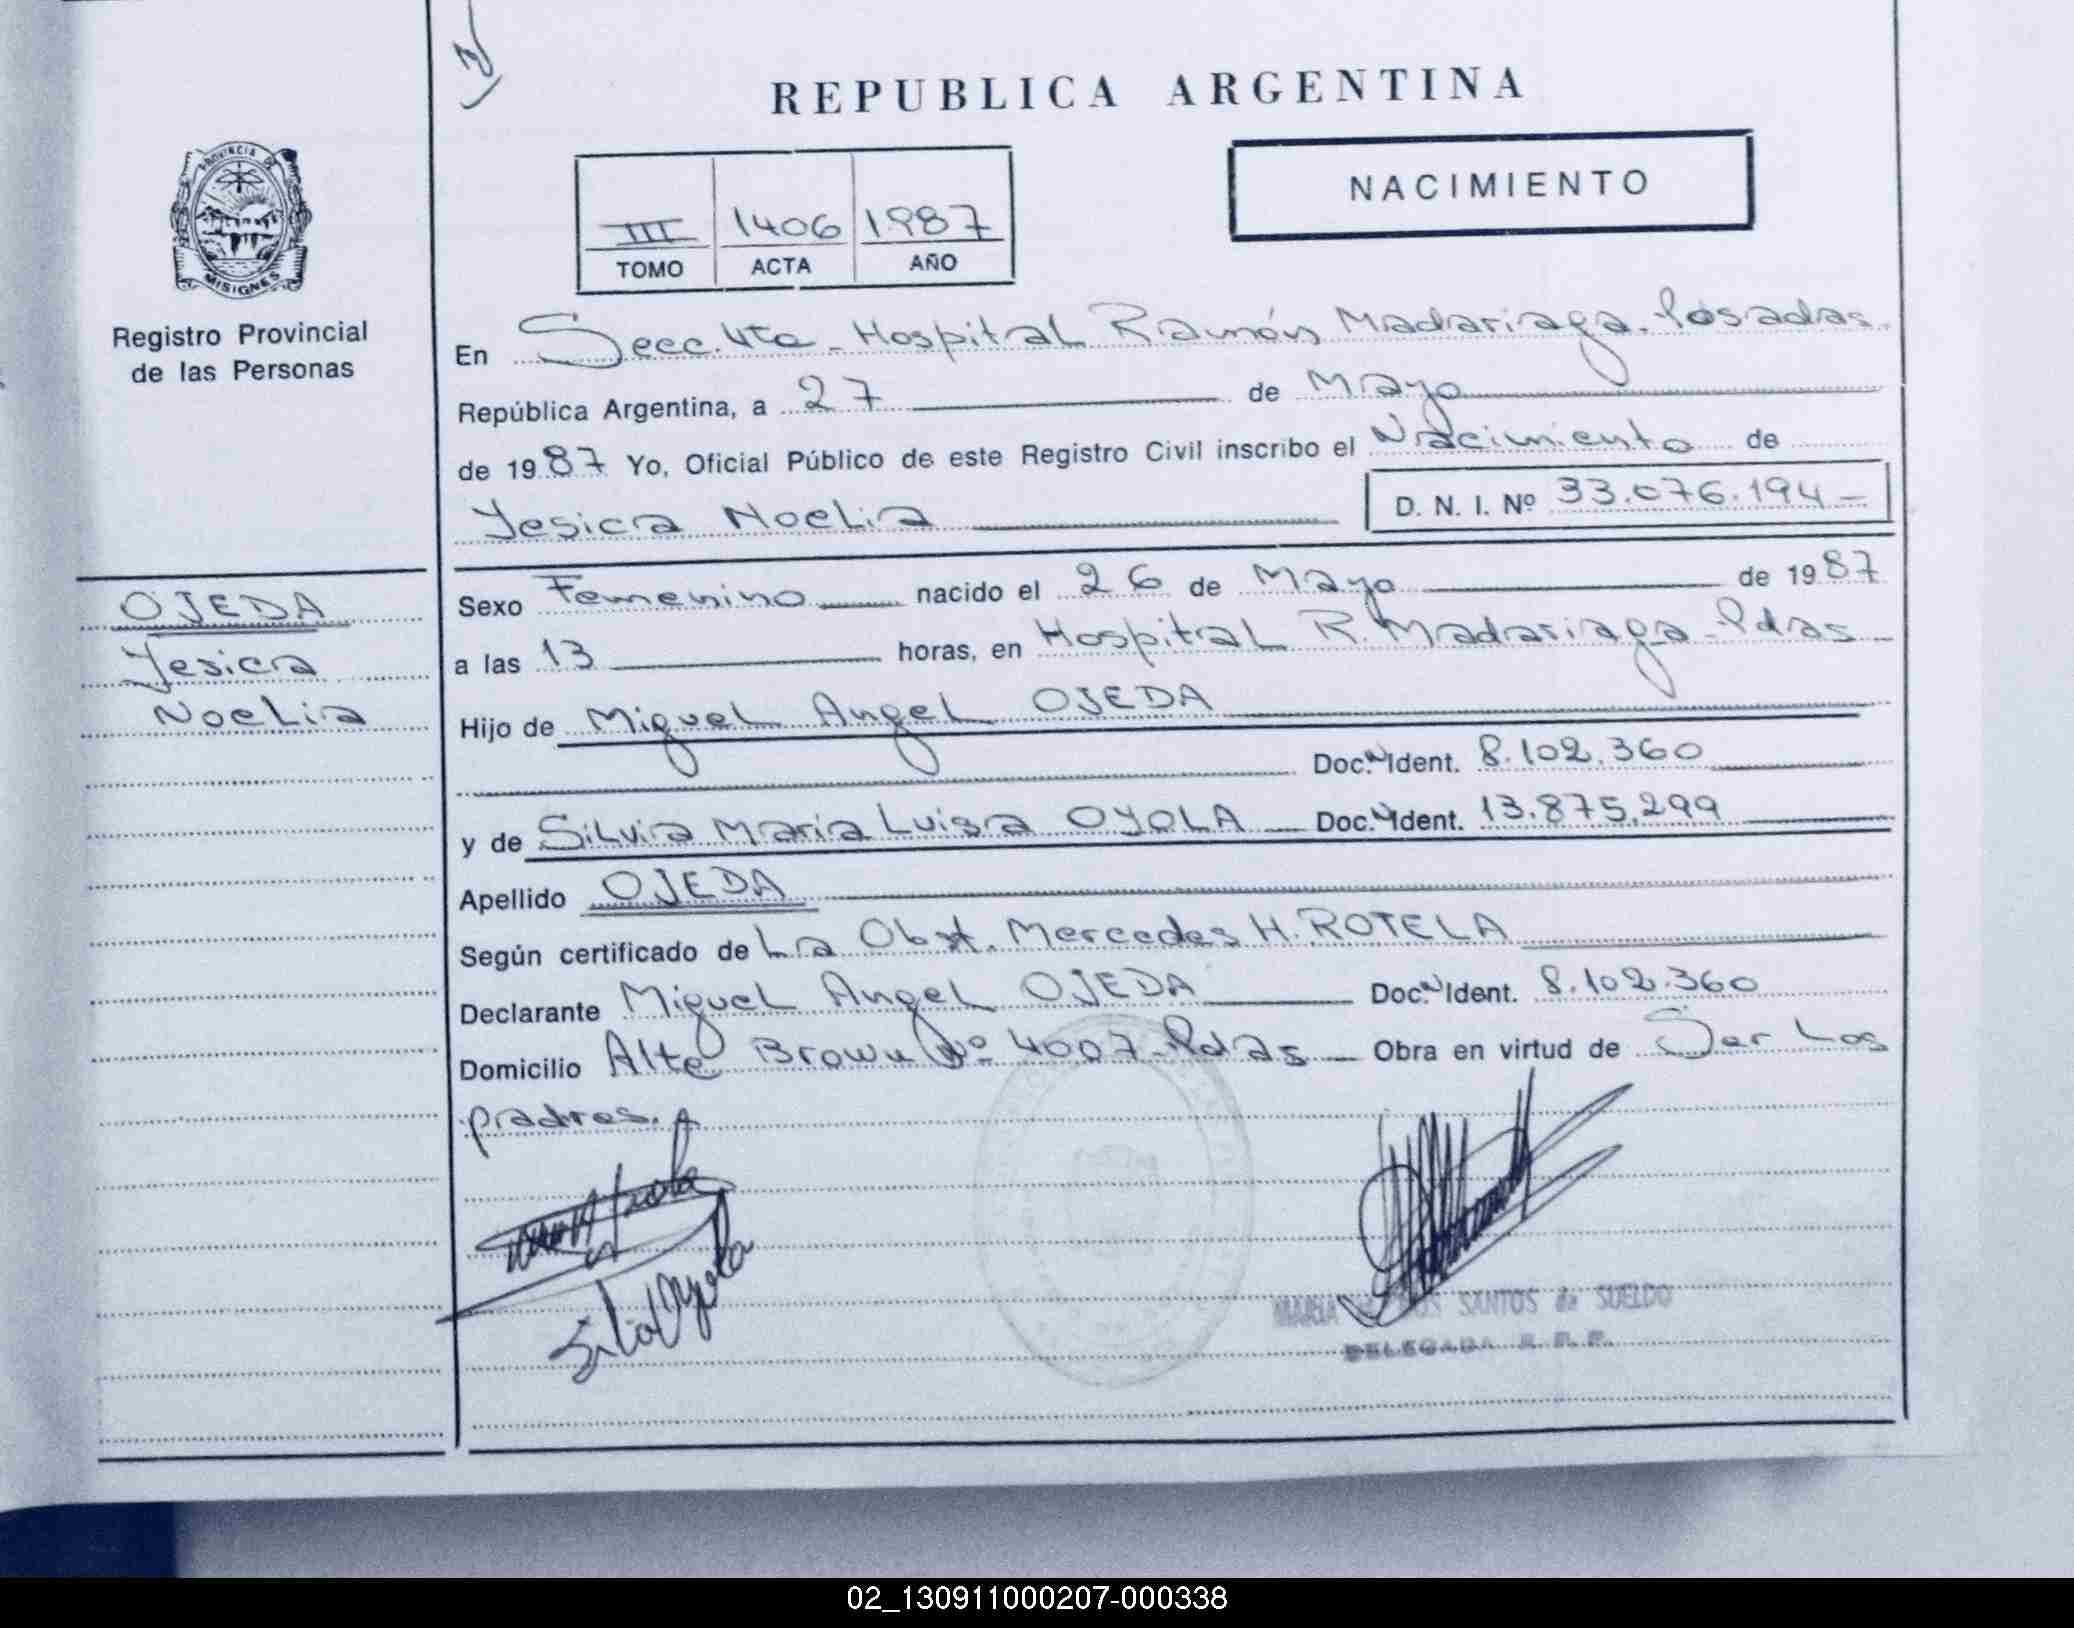 REPUBLICA ARGENTINA
NACIMIENTO
III 1406 1987
TOMO ACTA AÑO
PROVINCIA DE
MISIONES
Registro Provincial
de las Personas
OJEDA
Yesica
Noelia
En Secc. 4ta - Hospital Ramón Madariaga. Posadas.
República Argentina, a 27 de Mayo
de 1987 Yo, Oficial Público de este Registro Civil inscribo el Nacimiento de
Yesica Noelia D. N. I. Nº 33.076.194-
Sexo Femenino nacido el 26 de Mayo de 1987
a las 13 horas, en Hospital R. Madariaga - Pdas
Hijo de Miguel Angel OJEDA
Doc. N Ident. 8.102.360
y de Silvia Maria Luisa OYOLA Doc. N Ident. 13.875.299
Apellido OJEDA
Según certificado de La Obst. Mercedes H. ROTELA
Declarante Miguel Angel OJEDA Doc. N Ident. 8.102.360
Domicilio Alte Brown Nº 4007 - Pdas Obra en virtud de Ser Los
padres.
MARIA SANTOS de SUELDO
DELEGADA R. P. P.
02_130911000207-000338